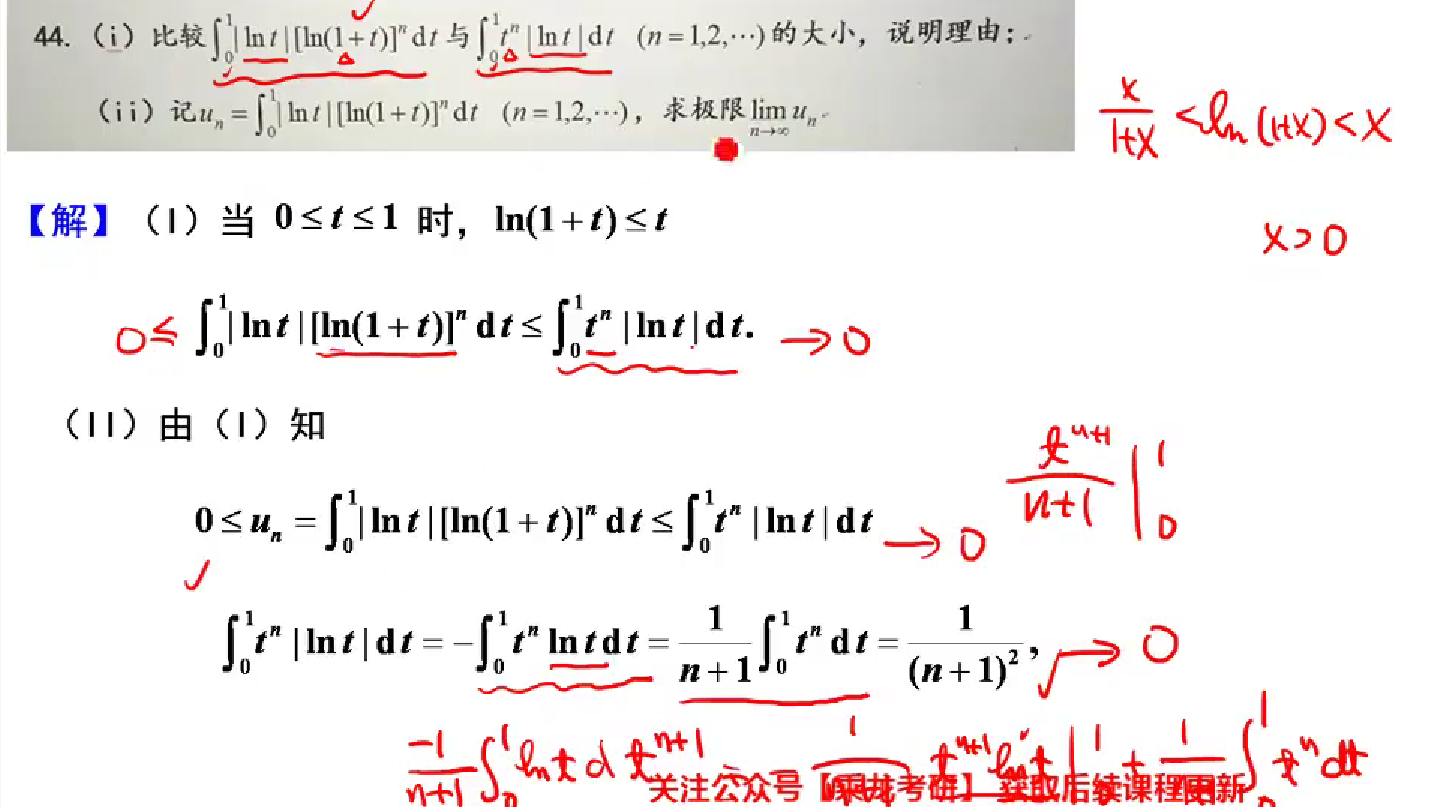 44.（i）比较∫₀¹|ln t|[ln(1+t)]ⁿdt与∫₀¹tⁿ|ln t|dt （n=1,2,⋯）的大小，说明理由；
（ii）记uₙ=∫₀¹|ln t|[ln(1+t)]ⁿdt （n=1,2,⋯），求极限lim uₙ
n→∞
x/(1+x) < ln(1+x) < x
x>0
【解】（I）当 0≤t≤1 时，ln(1+t)≤t
0≤ ∫₀¹|ln t|[ln(1+t)]ⁿdt≤∫₀¹tⁿ|ln t|dt. →0
（II）由（I）知
tⁿ⁺¹/(n+1) |₀¹
0≤uₙ=∫₀¹|ln t|[ln(1+t)]ⁿdt≤∫₀¹tⁿ|ln t|dt →0
∫₀¹tⁿ|ln t|dt=-∫₀¹tⁿ ln t dt=1/(n+1)∫₀¹tⁿdt=1/(n+1)², →0
-1/(n+1) ∫₀¹ ln t d tⁿ⁺¹ tⁿ⁺¹ ln t |₀¹ + ∫₀¹ tⁿ dt
关注公众号【乘龙考研】 获取后续课程更新